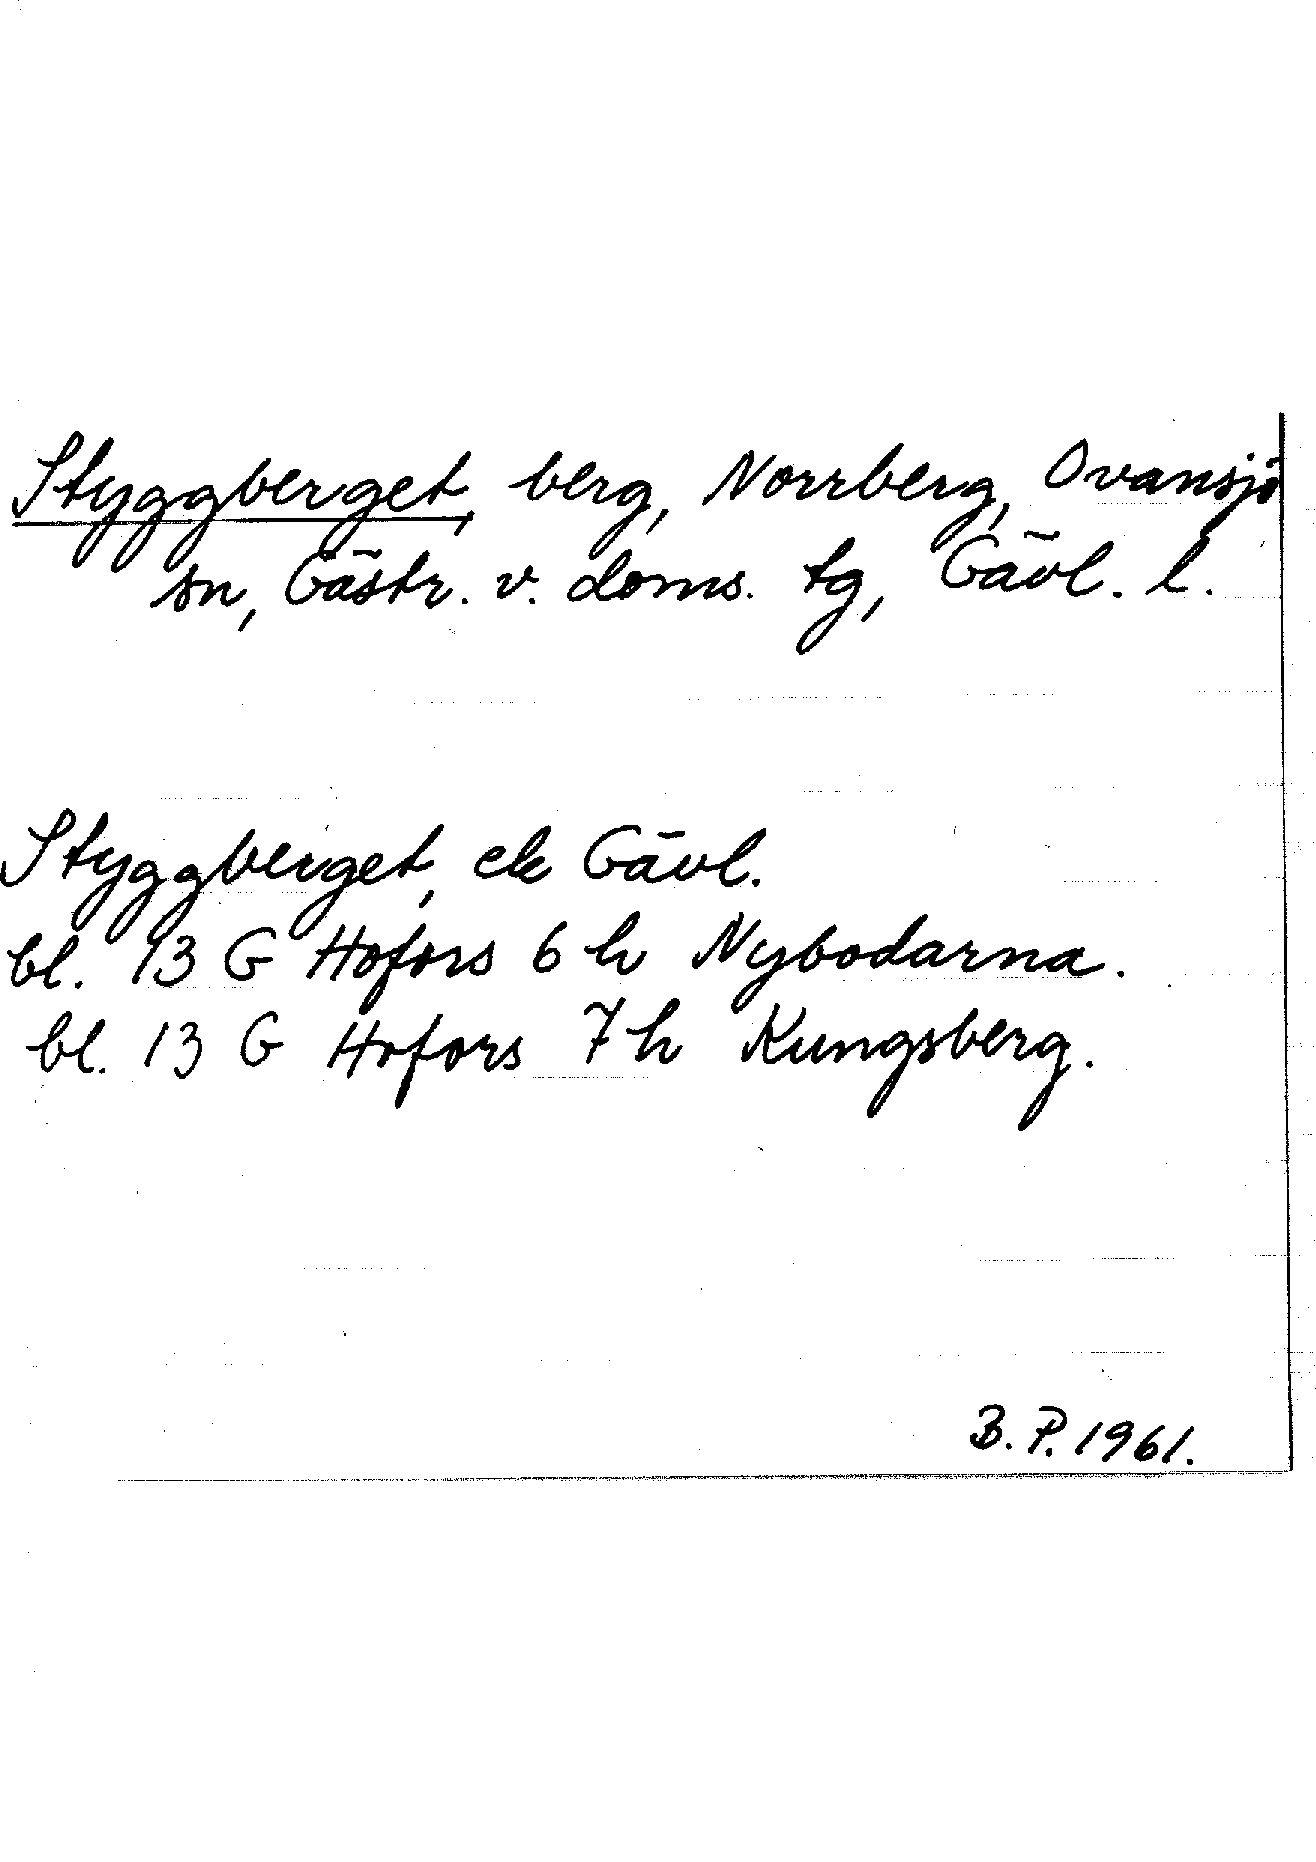 Styggberget, berg, Norrberg, Ovansjö
sn, Gästr. v. doms. tg, Gävl. l.
Styggberget, ek Gävl.
bl. 13 G Hofors 6 h Nybodarna.
bl. 13 G Hofors 7 h Kungsberg.
B. P. 1961.